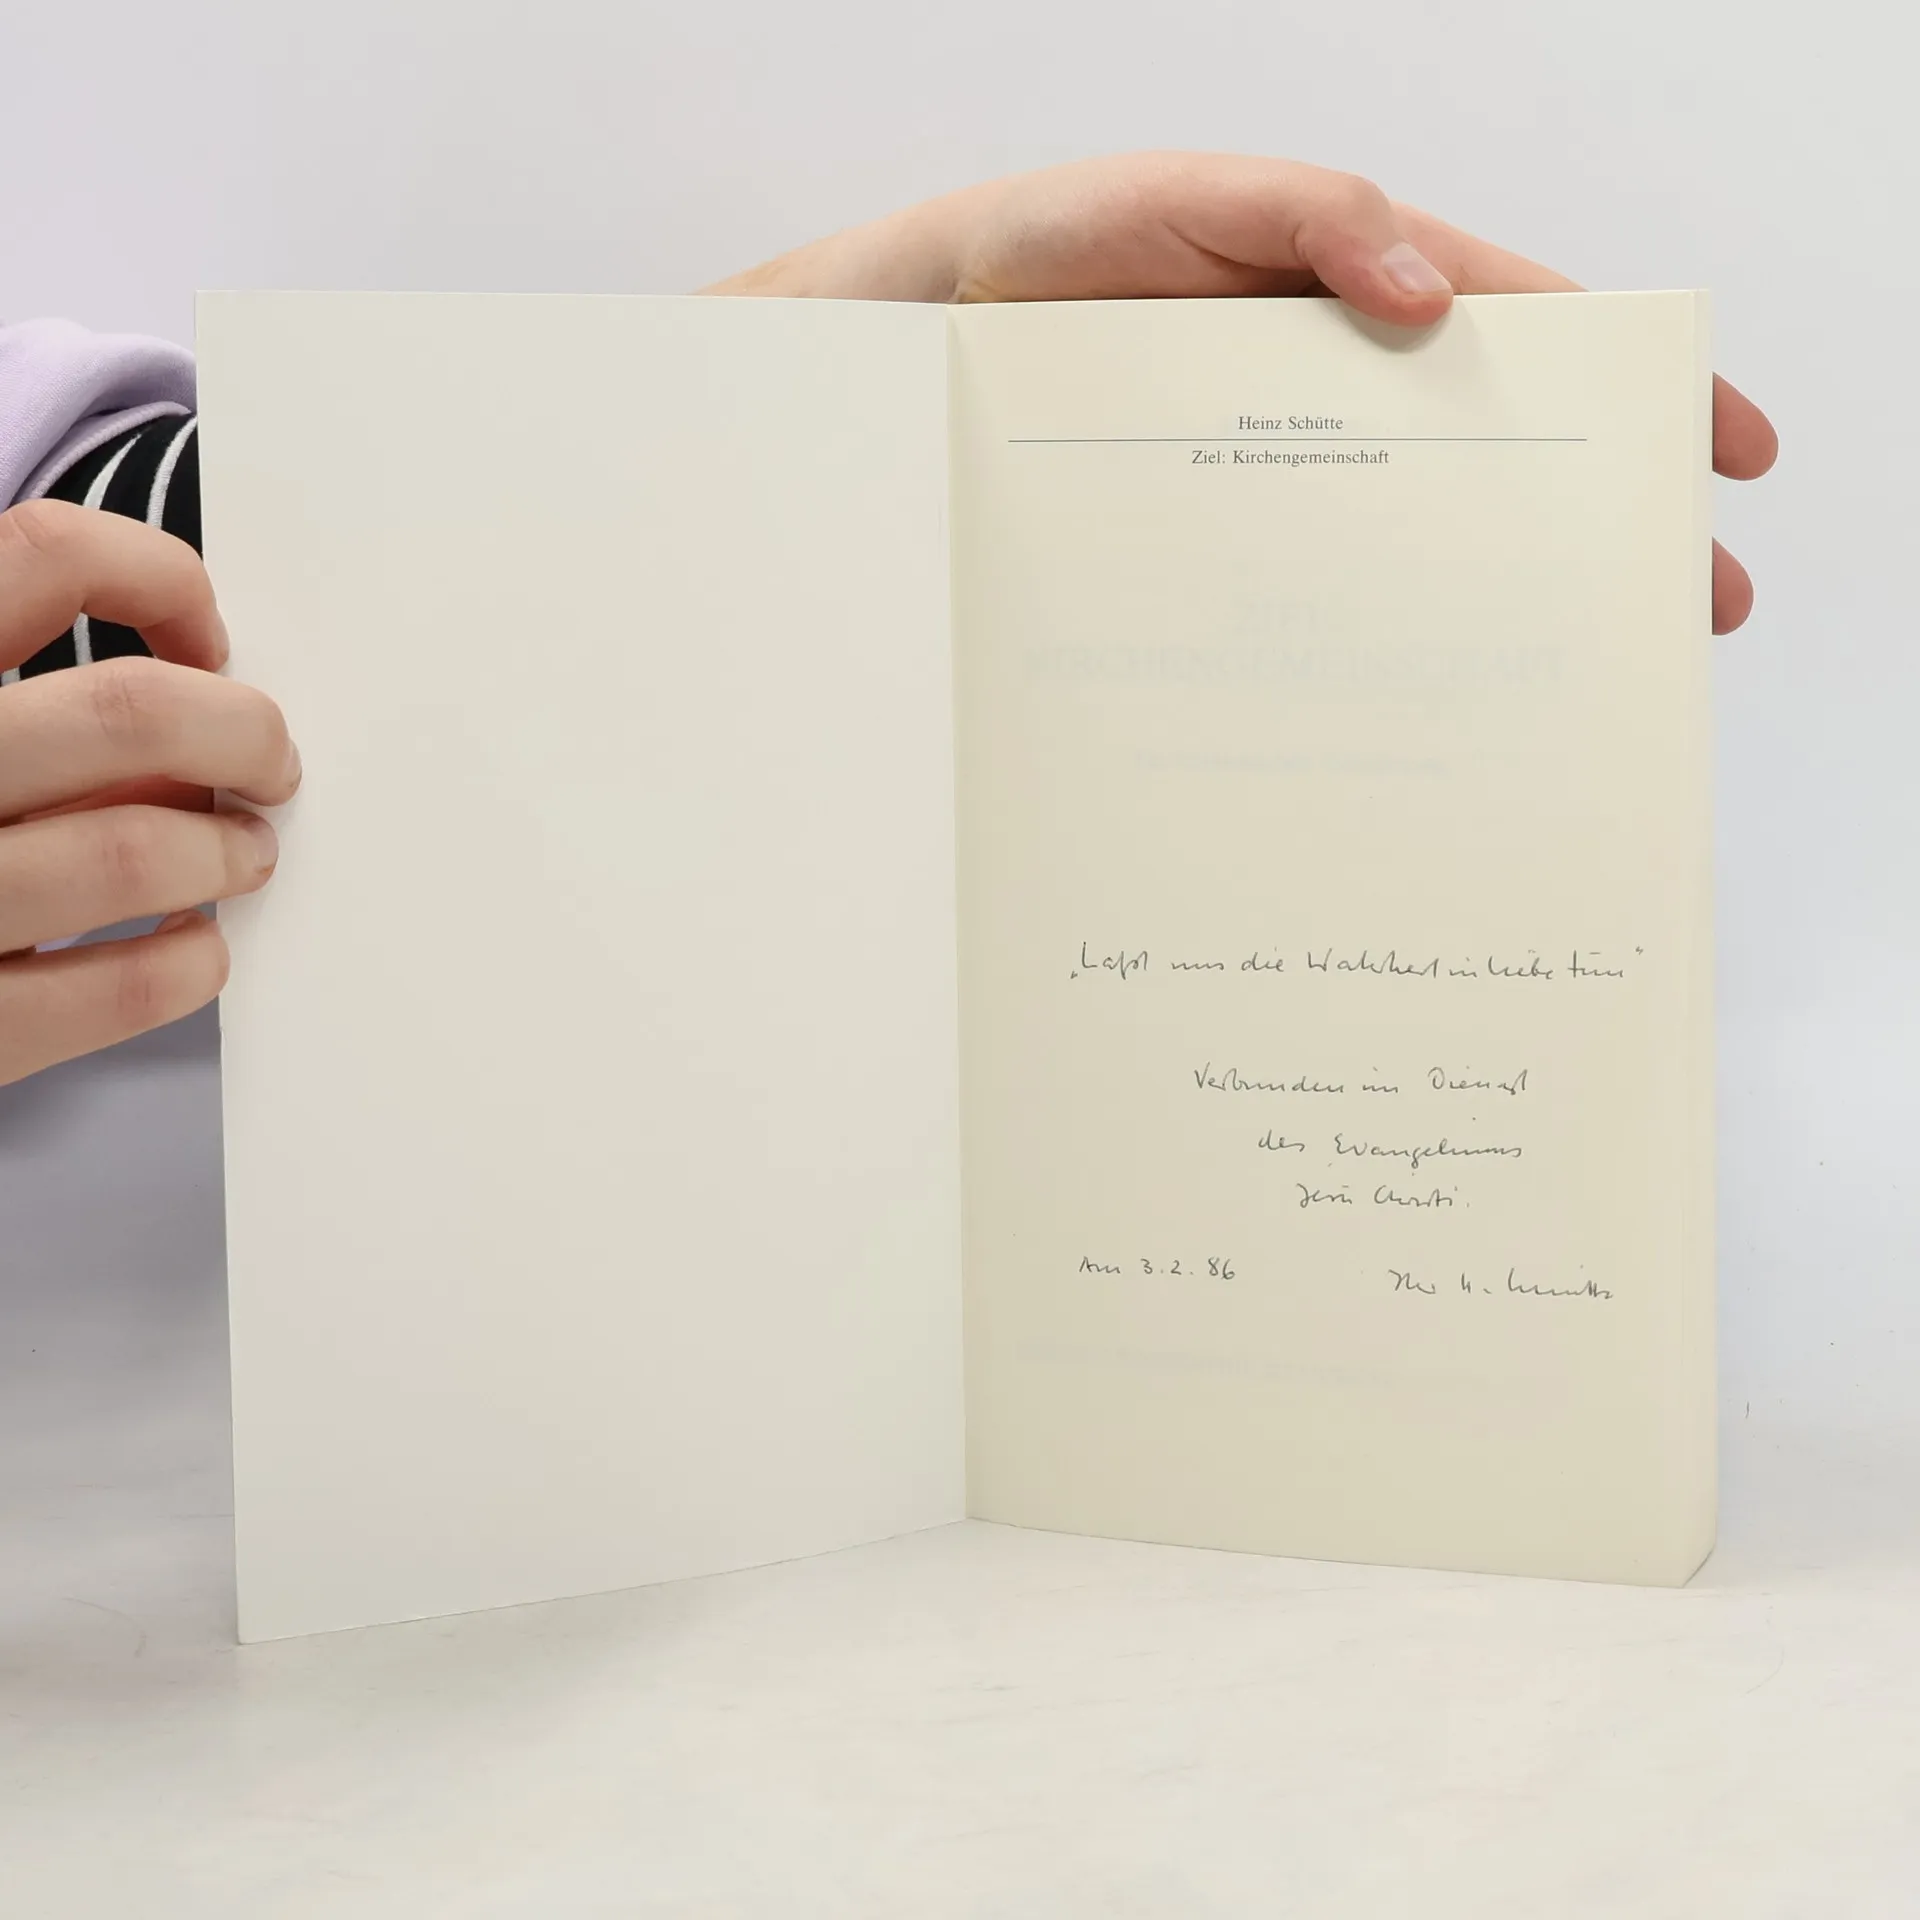 Heinz Schütte
Ziel: Kirchengemeinschaft
ZIEL
KIRCHENGEMEINSCHAFT
„Laßt uns die Wahrheit in Liebe tun“
Verbunden im Dienst
des Evangeliums
Jesu Christi.
Am 3.2.86
Ihr H. Schütte